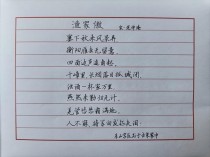 渔家傲
宋·范仲淹
塞下秋来风景异
衡阳雁去无留意
四面边声连角起
千嶂里,长烟落日孤城闭
浊酒一杯家万里
燕然未勒归无计
羌管悠悠霜满地
人不寐,将军白发征夫泪